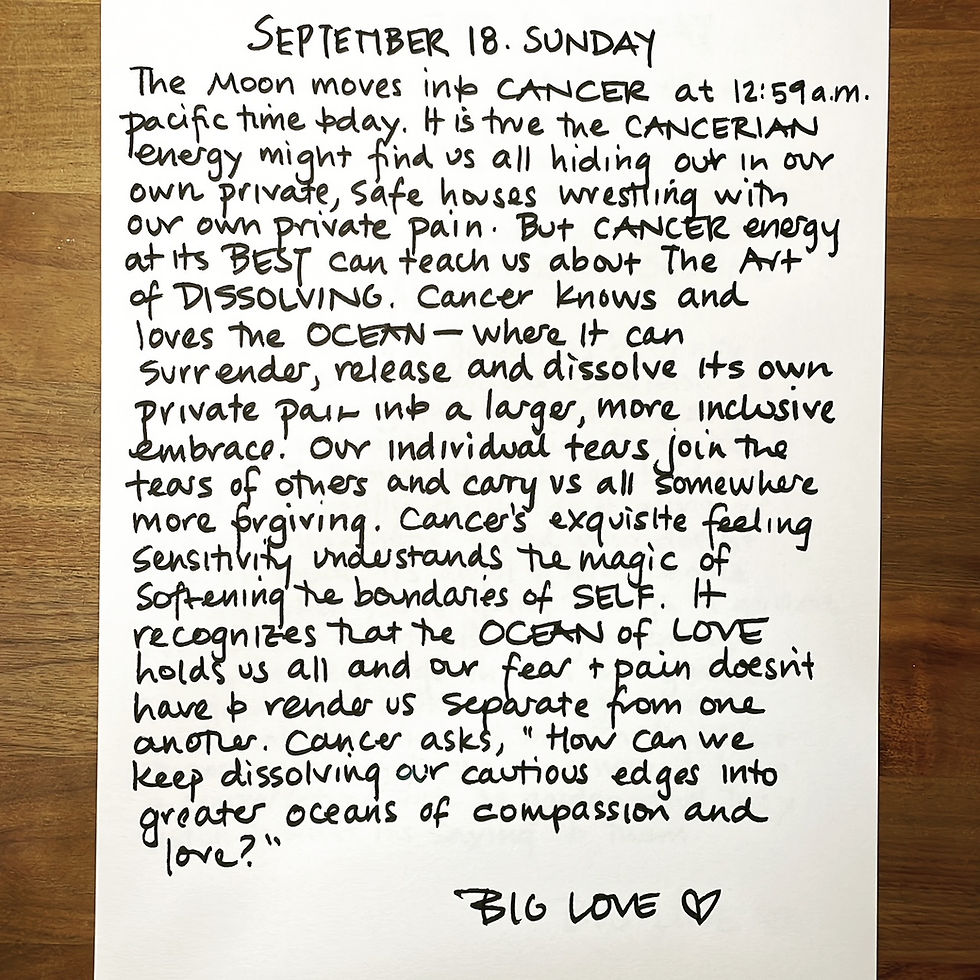 SEPTEMBER 18. SUNDAY
The Moon moves into CANCER at 12:59a.m.
pacific time today. It is true the CANCERIAN
energy might find us all hiding out in our
own private, safe houses wrestling with
our own private pain. But CANCER energy
at its BEST can teach us about The Art
of DISSOLVING. Cancer knows and
loves the OCEAN — where it can
surrender, release and dissolve its own
private pain into a larger, more inclusive
embrace. Our individual tears join the
tears of others and carry us all somewhere
more forgiving. Cancer's exquisite feeling
sensitivity understands the magic of
softening the boundaries of SELF. It
recognizes that the OCEAN of LOVE
holds us all and our fear + pain doesn't
have to render us separate from one
another. Cancer asks, "How can we
keep dissolving our cautious edges into
greater oceans of compassion and
love?"
BIG LOVE ♡